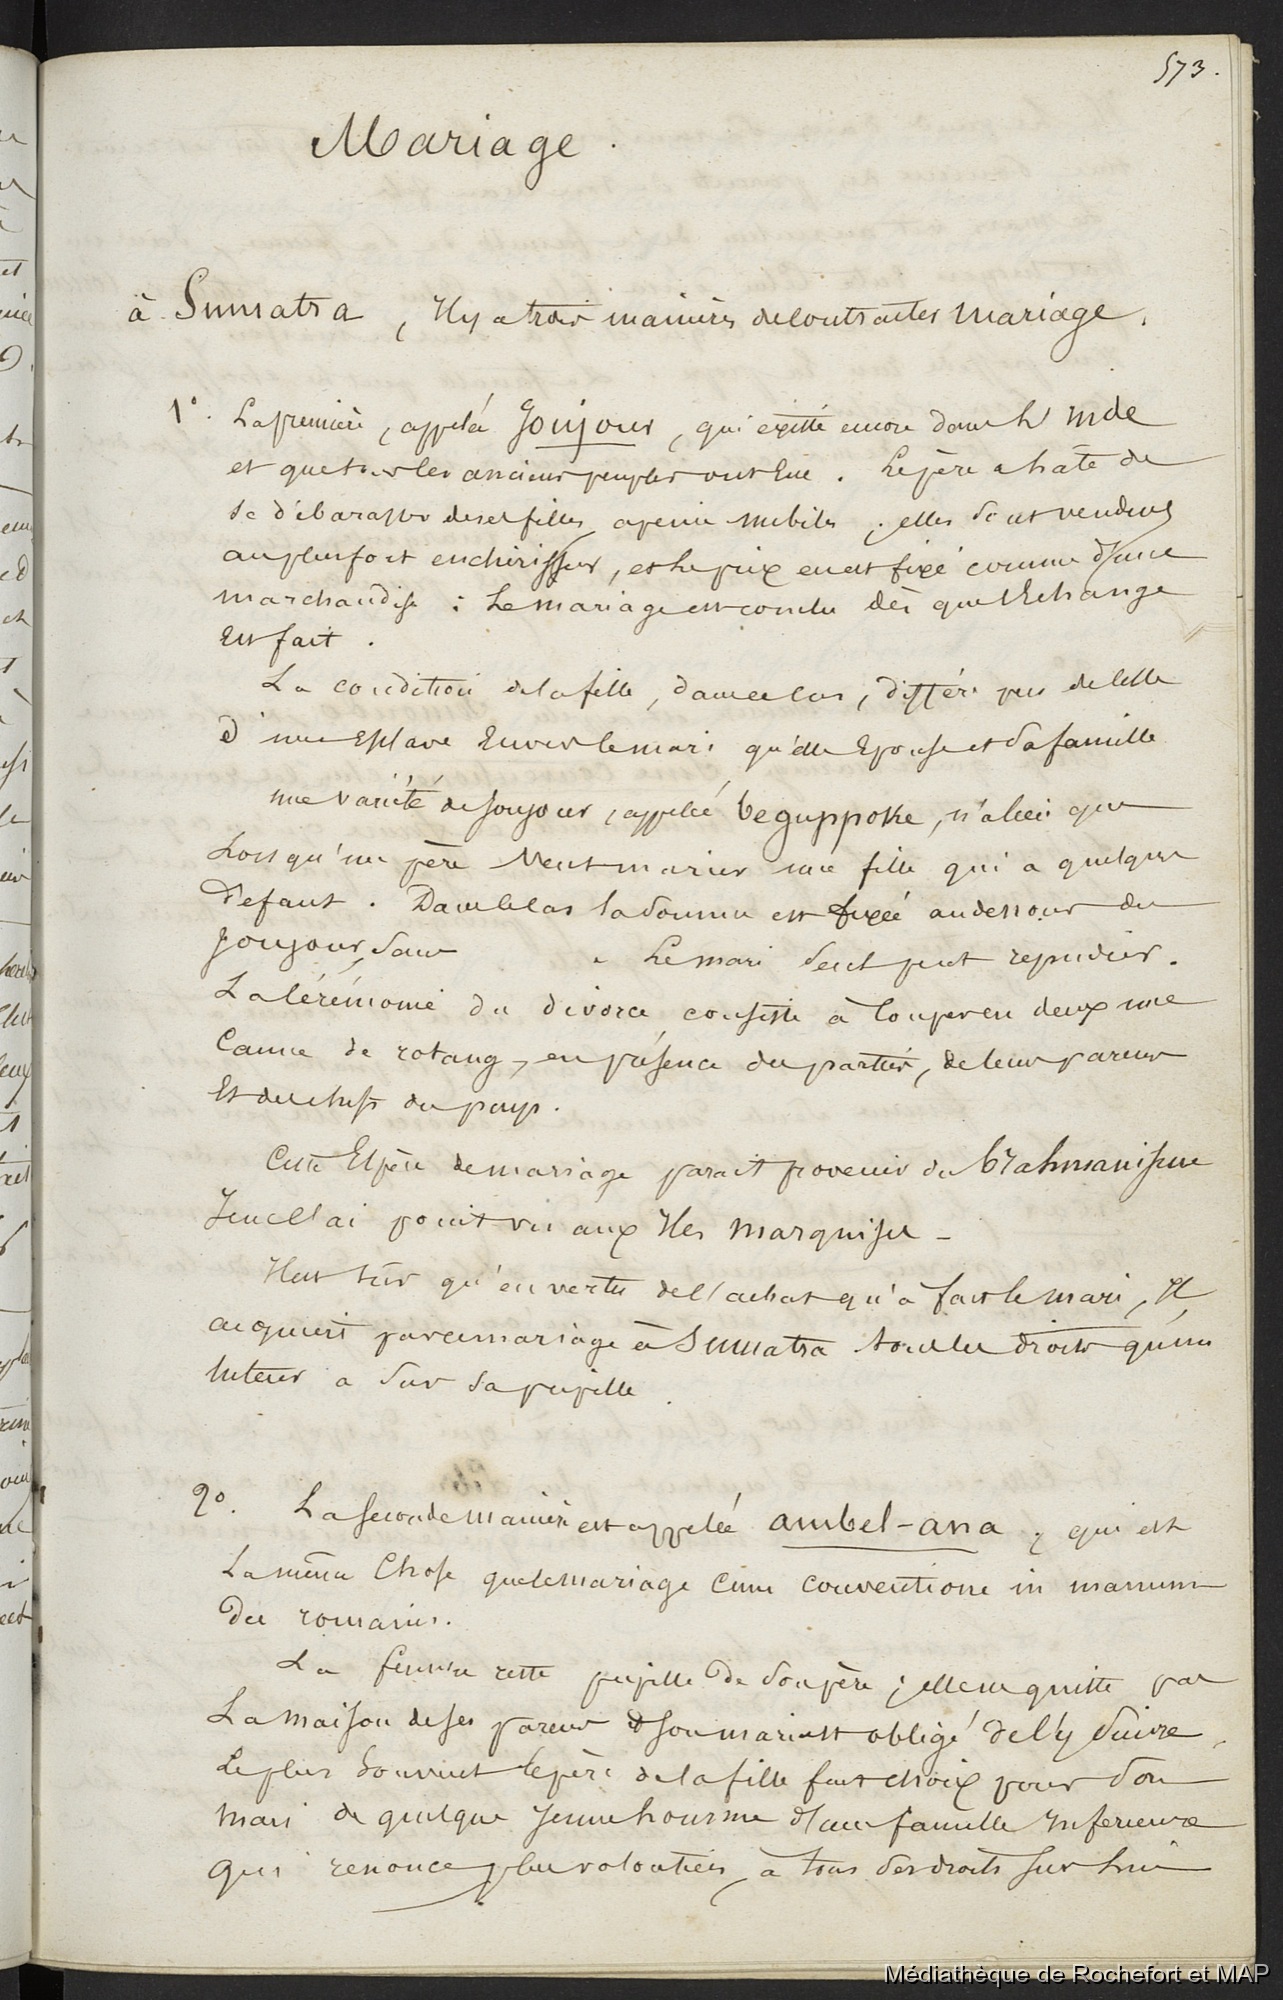 573.
Mariage.
à Sumatra, Il y a trois manières de contracter mariage.
1°. La première, appelée Joujour, qui existe encore dans l'Inde
et que tous les anciens peuples ont eue. Le père a hate de
se débarasser de ses filles à peine nubiles ; elles sont vendues
au plus fort enchérisseur, et le prix en est fixé comme d'une
marchandise : Le mariage est conclu dès que l'Echange
Est fait.
La condition de la fille, dans ce cas, diffère peu de celle
d'une Esclave Envers le mari qu'elle Epouse et sa famille
une variété de Joujour, appelée beguppoke, n'a lieu que
Lorsqu'un père Veut marier une fille qui a quelque
Défaut. Dans le cas la somme est fixée au dessous du
Joujour, sans . Le mari seul peut repudier.
La Cérémonie du divorce consiste à Couper en deux une
Canne de rotang, en présence des parties, de leurs parens
Et des chefs du pays.
Cette Espèce de mariage parait provenir du brahmanisme
Je ne l'ai point vu aux Iles marquises -
Il est sûr qu'en vertu de l'achat qu'a fait le mari, Il
acquiert par ce mariage à Sumatra tous les droits qu'un
tuteur a sur sa pupille.
2°. La seconde manière est appelée ambel-ana, qui est
La même Chose que le mariage cum conventione in manum
Des romains.
La femme reste pupille de son père ; elle ne quitte pas
La maison de ses parens & son mari est obligé de l'y suivre,
Le plus souvent le père de la fille fait choix pour son
mari de quelque Jeune homme d'une famille Inferieure
qui renonce plus volontiers, à tous ses droits sur lui
Médiathèque de Rochefort et MAP